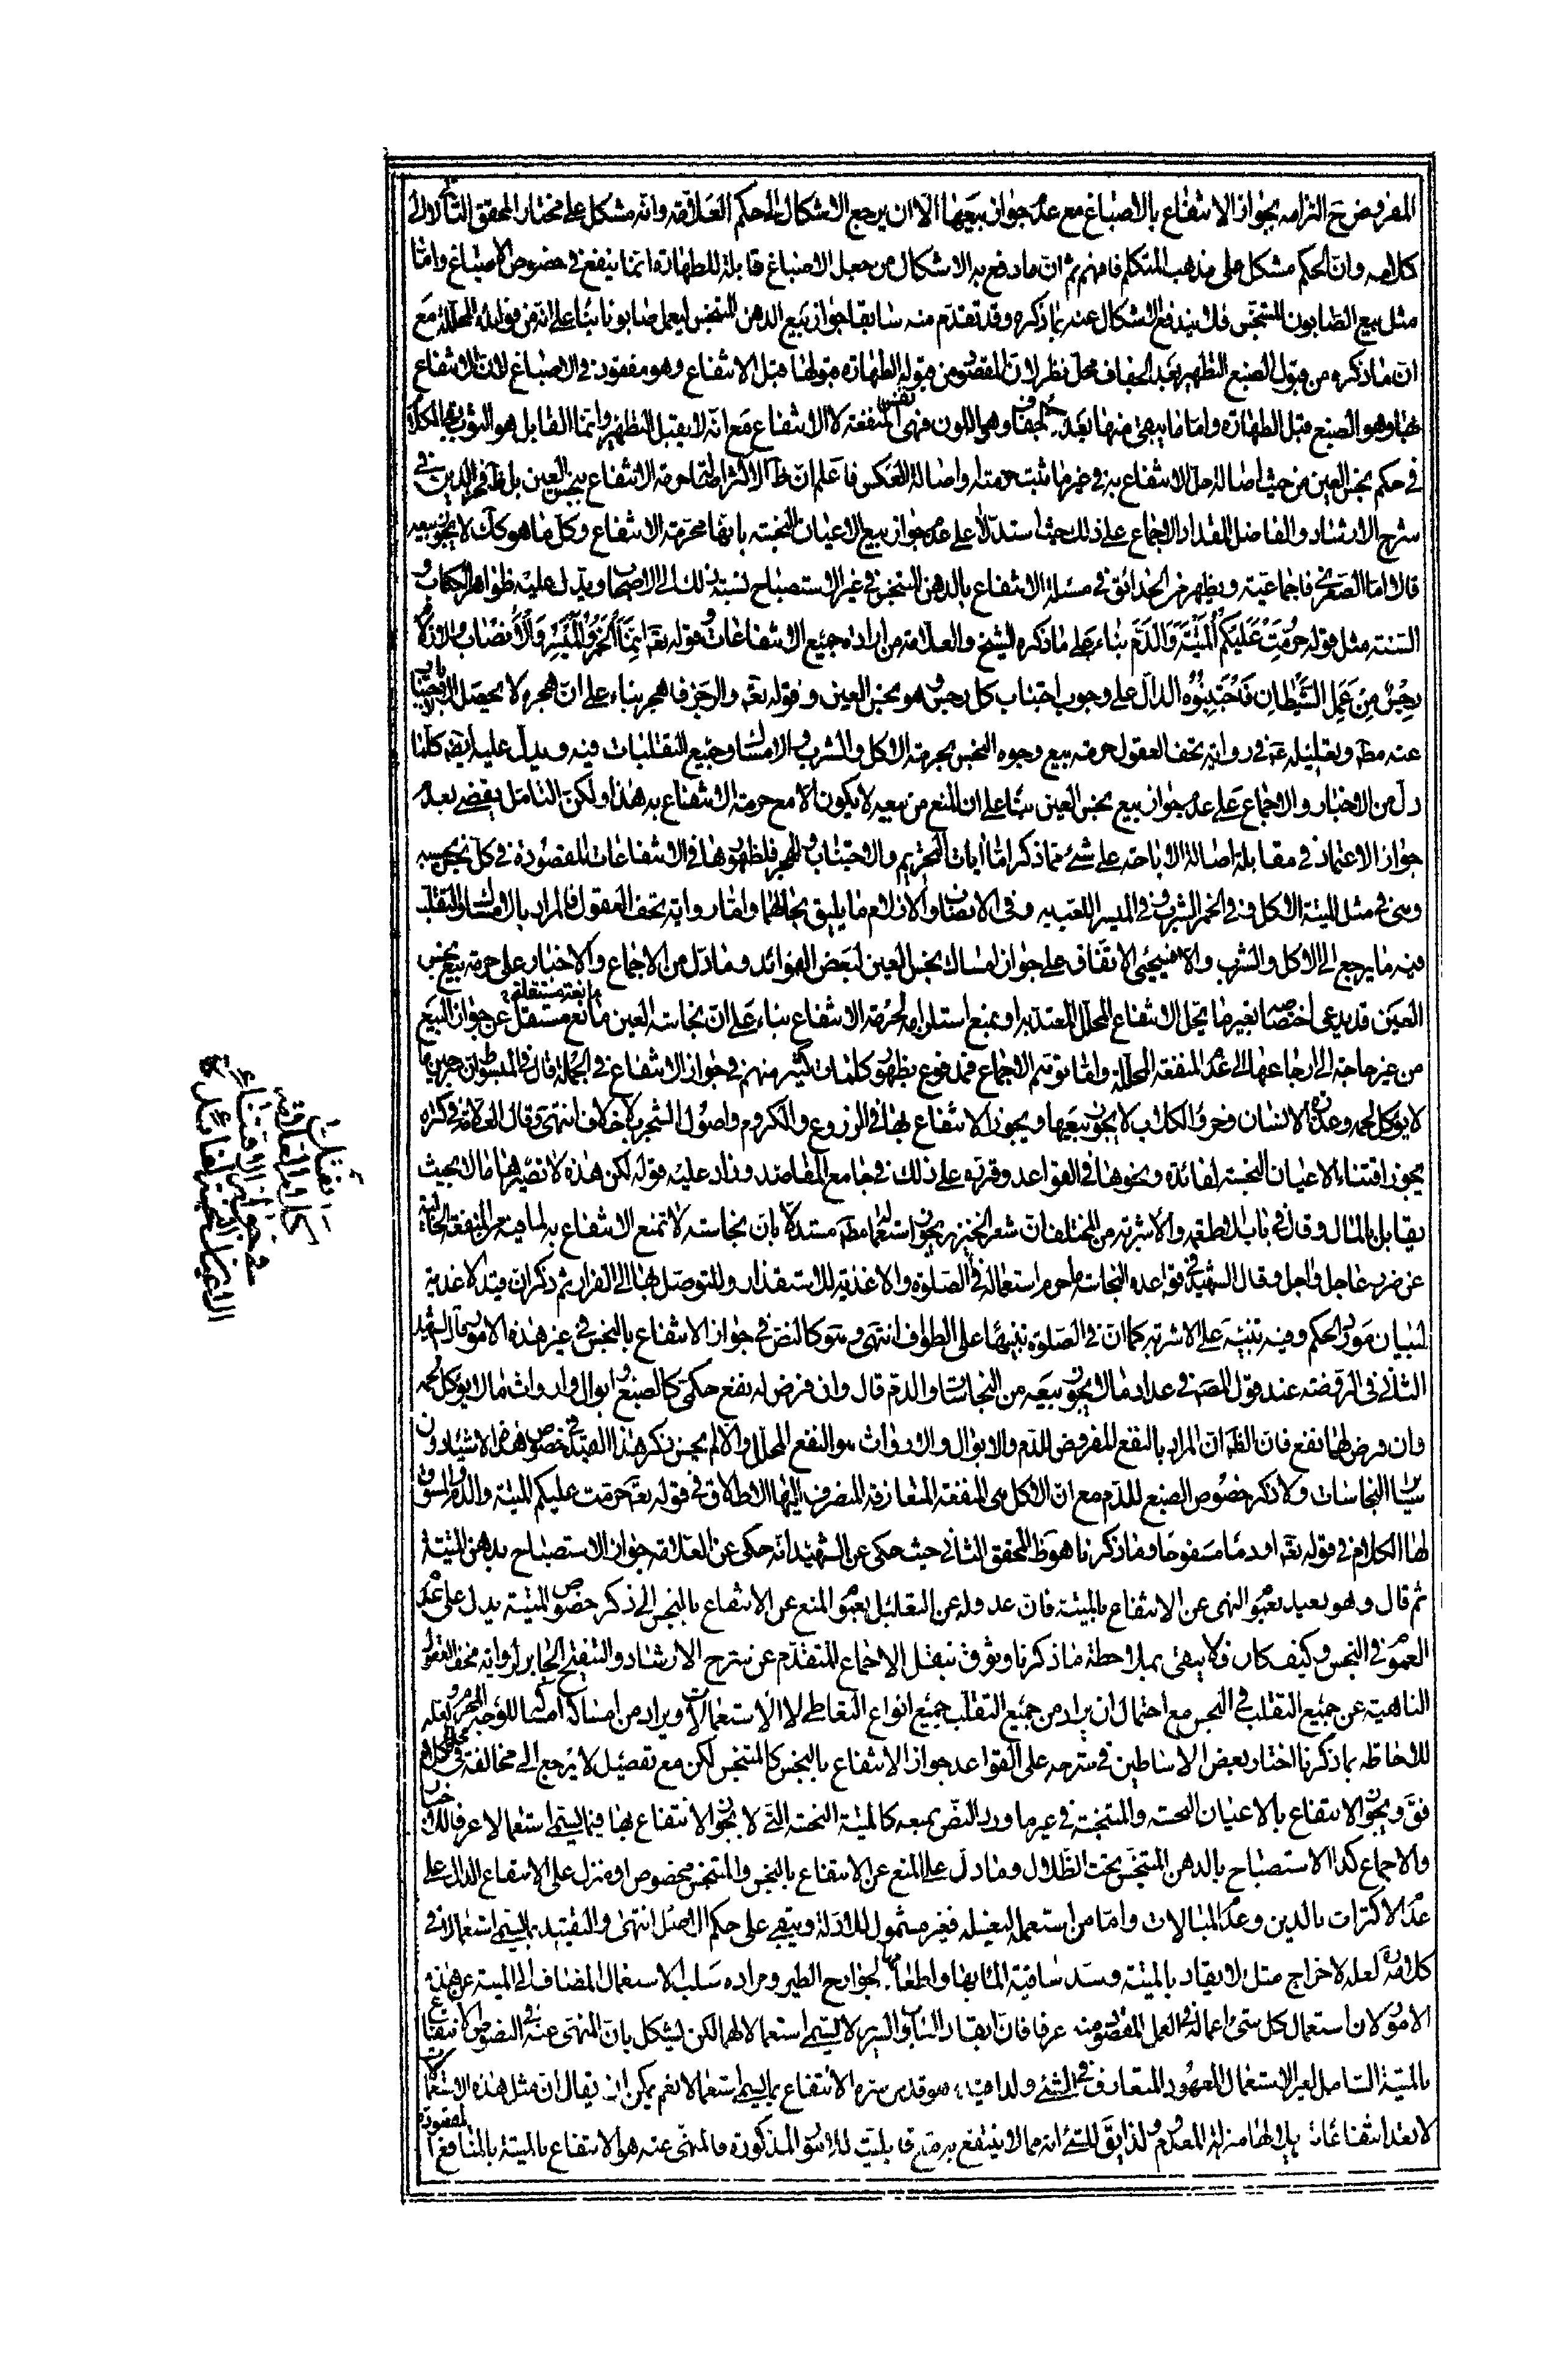 المفروض ح التزامه بجواز الانتفاع بالاصباغ مع عدم جواز بيعها الا ان يرجع الاشكال الى حكم العلامة وانه مشكل على مختار المحقق الثانى لا الى
كلامه وان الحكم مشكل على مذهب المتكلم فافهم ثم ان ما دفع به الاشكال من جعل الاصباغ قابلة للطهارة انما ينفع فى خصوص الاصباغ واما
مثل بيع الصابون المتنجس فلا يندفع الاشكال عنه بما ذكره وقد تقدم منه سابقا جواز بيع الدهن المتنجس ليعمل صابونا بناء على انه من فوائده المحللة مع
ان ما ذكره من قبول الصبغ التطهير بعد الجفاف محل نظر لان المقصود من قبوله الطهارة قبولها قبل الانتفاع وهو مفقود فى الاصباغ لان الانتفاع
بها وهو الصبغ قبل الطهارة واما ما يبقى منها بعد الجفاف وهو اللون فهى نفس المنفعة لا الانتفاع مع انه لا يقبل التطهير وانما القابل هو الثوب بقى الكلام
فى حكم نجس العين من حيث اصالة حل الانتفاع به فى غير ما ثبت حرمته او اصالة العكس فاعلم ان ظ الاكثر اصالة حرمة الانتفاع بنجس العين بل ظ فخر الدين فى
شرح الارشاد والفاضل المقداد الاجماع على ذلك حيث استدلا على عدم جواز بيع الاعيان النجسة بانها محرمة الانتفاع وكل ما هو كك لا يجوز بيعه
قالا اما الصغرى فاجماعية ويظهر من الحدائق فى مسئلة الانتفاع بالدهن المتنجس فى غير الاستصباح نسبة ذلك الى الاصحاب ويدل عليه ظواهر الكتاب و
السنة مثل قوله حُرِّمَتْ عَلَيْكُمُ الْمَيْتَةُ وَالدَّمُ بناء على ما ذكره الشيخ والعلامة من ارادة جميع الانتفاعات وقوله تعم اِنَّمَا الْخَمْرُ وَالْمَيْسِرُ وَالْاَنْصَابُ وَالْاَزْلَامُ
رِجْسٌ مِنْ عَمَلِ الشَّيْطَانِ فَاجْتَنِبُوهُ الدال على وجوب اجتناب كل رجس وهو نجس العين وقوله تعم والرجز فاهجر بناء على ان هجره لا يحصل الا بالاجتناب
عنه مطه وتعليله ع فى رواية تحف العقول حرمة بيع وجوه النجس بحرمة الاكل والشرب والامساك وجميع التقلبات فيه ويدل عليه ايضه كلما
دل من الاخبار والاجماع على عدم جواز بيع نجس العين بناء على ان المنع من بيعه لا يكون الا مع حرمة الانتفاع به هذا ولكن التامل يقضى بعدم
جواز الاعتماد فى مقابلة اصالة الاباحة على شئ مما ذكر اما ايات التحريم والاجتناب والهجر فلظهورها فى الانتفاعات المقصودة فى كل نجس بحسبه
وهى فى مثل الميتة الاكل وفى الخمر الشرب وفى الميسر اللعب به وفى الانصاب والازلام ما يليق بحالهما واما رواية تحف العقول فالمراد بالامساك والتقلب
فيه ما يرجع الى الاكل والشرب والا فسيجئ الاتفاق على جواز امساك نجس العين لبعض الفوائد وما دل من الاجماع والاخبار على حرمة بيع نجس
العين قد يدعى اختصاصه بغير ما يحل الانتفاع المحلل المعتد به او يمنع استلزامه لحرمة الانتفاع بناء على ان نجاسة العين مانع مستقل عن جواز البيع
مانعة مستقلة
من غير حاجة الى ارجاعها الى عدم المنفعة المحللة واما توهم الاجماع فمدفوع بظهور كلمات كثير منهم فى جواز الانتفاع فى الجملة قال فى المبسوط ان سرجين ما
لا يؤكل لحمه وعذرة الانسان وخرؤ الكلاب لا يجوز بيعها ويجوز الانتفاع بها فى الزروع والكروم واصول الشجر بلا خلاف انتهى وقال العلامة فى كره
يجوز اقتناء الاعيان النجسة لفائدة ونحوها فى القواعد وقرره على ذلك فى جامع المقاصد وزاد عليه قوله لكن هذه لا تصيرها مالا بحيث
يقابل بالمال وقال فى باب الاطعمة والاشربة من المختلف ان شعر الخنزير يجوز استعماله مطه مستدلا بان نجاسته لا تمنع الانتفاع به لما فيه من المنفعة الخالية
عن ضرر عاجل واجل وقال الشهيد فى قواعده النجاسة ما حرم استعماله فى الصلوة والاغذية للاستقذار وللتوصل بها الى الفرار ثم ذكر ان قيد الاغذية
لبيان مورد الحكم وفيه تنبيه على الاشربة كما ان فى الصلوة تنبيها على الطواف انتهى وهو كالنص فى جواز الانتفاع بالنجس فى غير هذه الامور وقال الشهيد
الثانى فى الروضة عند قول المصه فى عداد ما لا يجوز بيعه من النجاسات والدم قال وان فرض له نفع حكمى كالصبغ وابوال وارواث ما لا يؤكل لحمه
وان فرض لهما نفع فان الظ ان المراد بالنفع المفروض للدم والابوال والارواث هو النفع المحلل والا لم يحسن ذكر هذا القيد فى خصوص هذه الاشياء دون
ساير النجاسات ولا ذكر خصوص الصبغ للدم مع ان الاكل هى المنفعة المتعارفة المنصرف اليها الاطلاق فى قوله تعم حرمت عليكم الميتة والدم والمسوق
لها الكلام فى قوله تعم او دما مسفوحا وما ذكرنا هو ظ المحقق الثانى حيث حكى عن الشهيد انه حكى عن العلامة جواز الاستصباح بدهن الميتة
ثم قال وهو بعيد لعموم النهى عن الانتفاع بالميتة فان عدوله عن التعليل بعموم المنع عن الانتفاع بالنجس الى ذكر خصوص الميتة يدل على عدم
العموم فى النجس وكيف كان فلا يبقى بملاحظة ما ذكرنا وثوق بنقل الاجماع المتقدم عن شرح الارشاد والتنقيح الجابر لرواية تحف العقول
الناهية عن جميع التقلب فى النجس مع احتمال ان يراد من جميع التقلب جميع انواع التعاطى لا الاستعمالات ويراد من امساكه امساكه للوجه المحرم ولعله
للاحاطة بما ذكرنا اختار بعض الاساطين فى شرحه على القواعد جواز الانتفاع بالنجس كالمتنجس لكن مع تفصيل لا يرجع الى مخالفة فى محل الكلام
فق ويجوز الانتفاع بالاعيان النجسة والمتنجسة فى غير ما ورد النص بمنعه كالميتة النجسة التى لا يجوز الانتفاع بها فيما يسمى استعمالا عرفا للاخبار
والاجماع كذا الاستصباح بالدهن المتنجس تحت الظلال وما دل على المنع عن الانتفاع بالنجس والمتنجس مخصوص او منزل على الانتفاع الدال على
عدم الاكتراث بالدين وعدم المبالات واما من استعمله ليغسله فغير مشمول للادلة ويبقى على حكم الاصل انتهى والتقييد بما يسمى استعمالا فى
كلامه ره لعله لاخراج مثل الايقاد بالميتة وسد ساقية الماء بها واطعامها لجوارح الطير ومراده سلب الاستعمال المضاف الى الميتة عن هذه
الامور لان استعمال كل شئ اعماله فى العمل المقصود منه عرفا فان ايقاد الباب والسرير لا يسمى استعمالا لهما لكن يشكل بان المنهى عنه فى النصوص الانتفاع
بالميتة الشامل لغير الاستعمال المعهود المتعارف فى الشئ ولذا قيد هو قدس سره الانتفاع بما يسمى استعمالا نعم يمكن ان يقال ان مثل هذه الاستعمالات
لا تعد انتفاعات تنزيلا لها منزلة المعدوم ولذا يق للشئ انه مما لا ينتفع به مع قابليته للامور المذكورة فالمنهى عنه هو الانتفاع بالميتة بالمنافع المقصودة